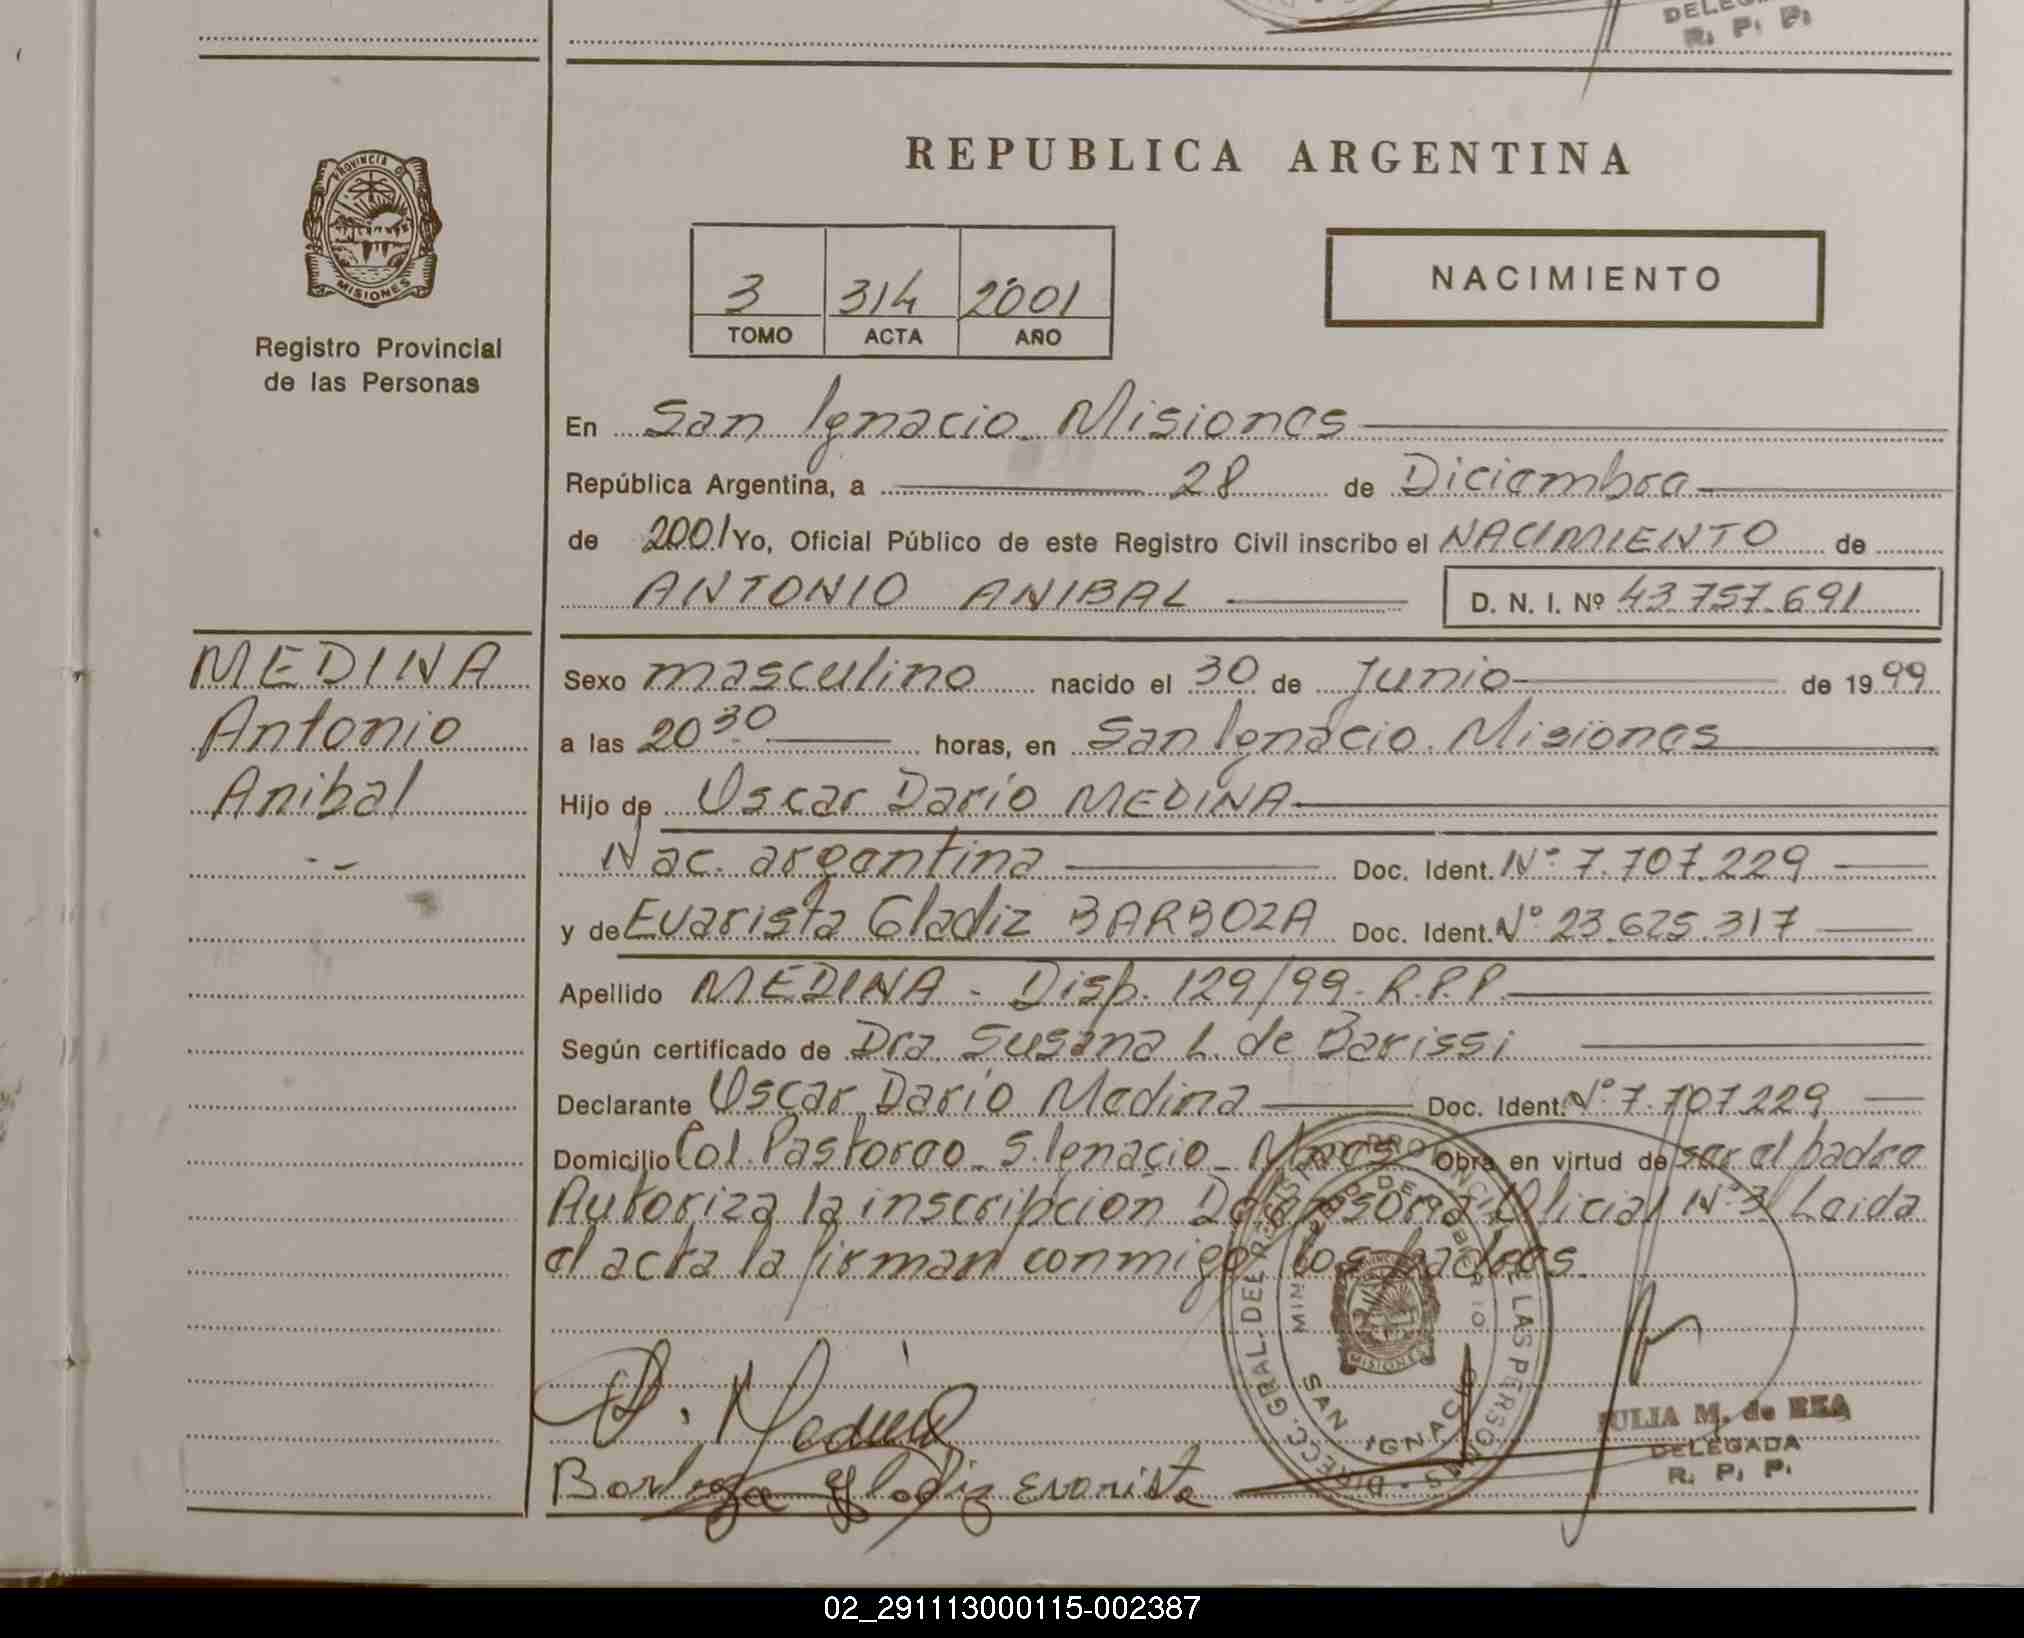 DELEGADA
R. P. P.
PROVINCIA DE
MISIONES
Registro Provincial
de las Personas
REPUBLICA ARGENTINA
3 314 2001
TOMO ACTA AÑO
NACIMIENTO
En San Ignacio Misiones
República Argentina, a 28 de Diciembre
de 2001 Yo, Oficial Público de este Registro Civil inscribo el NACIMIENTO de
ANTONIO ANIBAL D. N. I. Nº 43.757.691
MEDINA
Antonio
Anibal
Sexo masculino nacido el 30 de Junio de 1999
a las 20 30 horas, en San Ignacio. Misiones
Hijo de Oscar Darío MEDINA
Nac. argentina Doc. Ident. Nº 7.707.229
y de Evarista Gladiz BARBOZA Doc. Ident. Nº 23.625.317
Apellido MEDINA - Disp. 129/99 - R.P.P.
Según certificado de Dra Susana L. de Barissi
Declarante Oscar Darío Medina Doc. Ident. Nº 7.707.229
Domicilio Col. Pastoreo - S. Ignacio - Mnes Obra en virtud de ser el padre
Autoriza la inscripcion Defensoria Oficial Nº 3 Leida
el acta la firman conmigo los padres.
DIRECC. GRAL. DEL REGISTRO PROVINCIAL DE LAS PERSONAS
MINISTERIO DE GOBIERNO
MISIONES
SAN IGNACIO
O. Medina
Barboza Gladiz Evarista
JULIA M. de REA
DELEGADA
R. P. P.
02_291113000115-002387